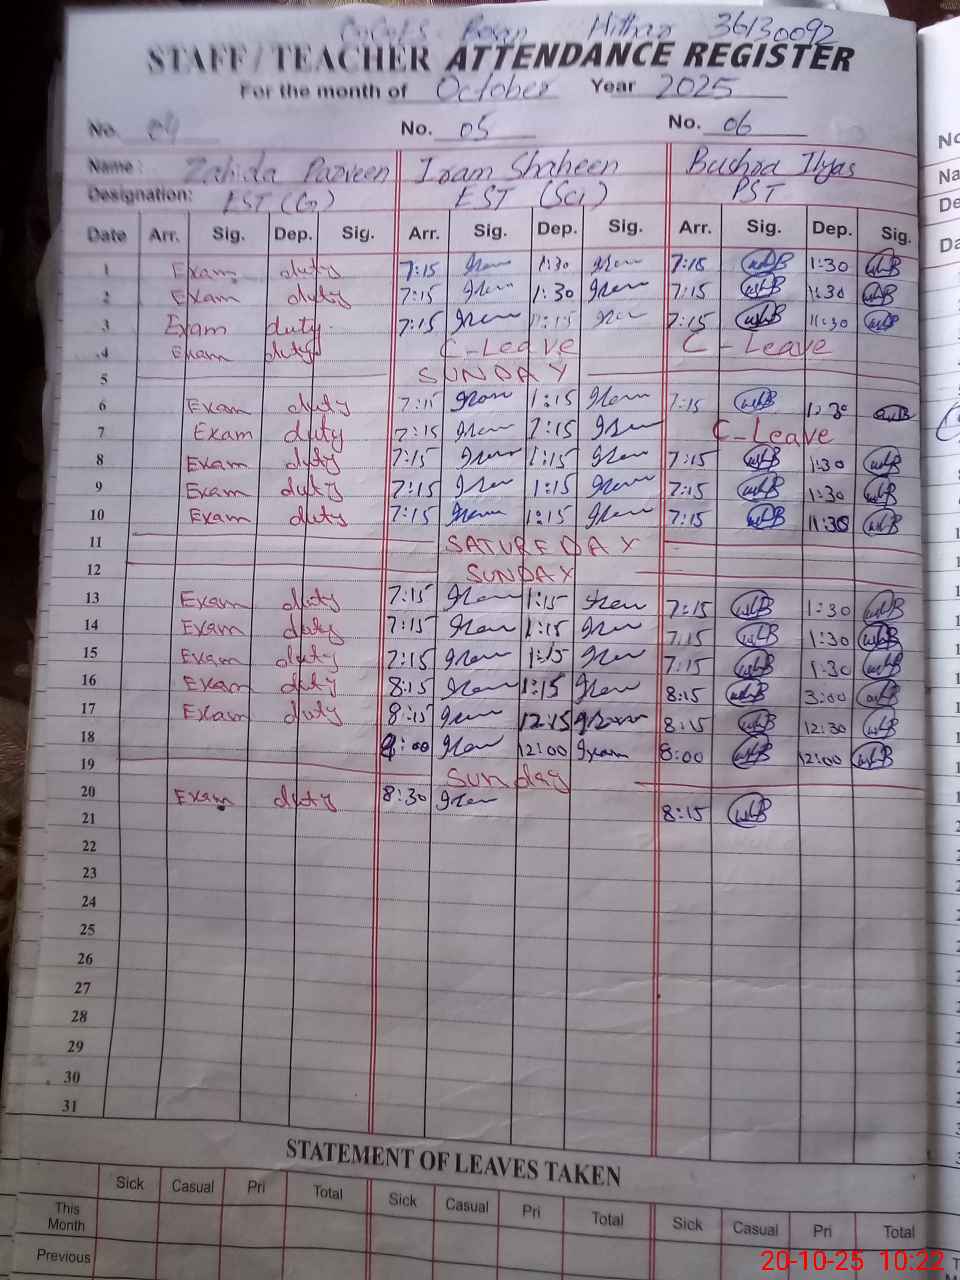 Hithar 36130092
STAFF / TEACHER ATTENDANCE REGISTER
For the month of October Year 2025
No. 04 No. 05 No. 06
Name: Zahida Parveen Iram Shaheen Bushra Ilyas
Designation: EST (G) EST (Sci) PST
Date Arr. Sig. Dep. Sig. Arr. Sig. Dep. Sig. Arr. Sig. Dep. Sig.
1 Exam duty 7:15 1:30 7:15 1:30
2 Exam duty 7:15 1:30 7:15 1:30
3 Exam duty 7:15 11:15 7:15 11:30
4 Exam duty C-Leave C-Leave
5 SUNDAY
6 Exam duty 7:15 1:15 7:15
7 Exam duty 7:15 C-Leave
8 Exam duty 7:15 1:15 7:15 1:30
9 Exam duty 7:15 1:15 7:15 1:30
10 Exam duty 7:15 1:15 7:15 11:30
11 SATUREDAY
12 SUNDAY
13 Exam duty 7:15 1:15 7:15 1:30
14 Exam duty 7:15 1:15 7:15 1:30
15 Exam duty 7:15 1:15 7:15 1:30
16 Exam duty 8:15 1:15 8:15 3:00
17 Exam duty 8:15 12:15 8:15 12:30
18 8:00 12:00 8:00 12:00
19 Sunday
20 Exam duty 8:30 8:15
21
22
23
24
25
26
27
28
29
30
31
STATEMENT OF LEAVES TAKEN
Sick Casual Pri Total Sick Casual Pri Total Sick Casual Pri Total
This Month
Previous
20-10-25 10:22